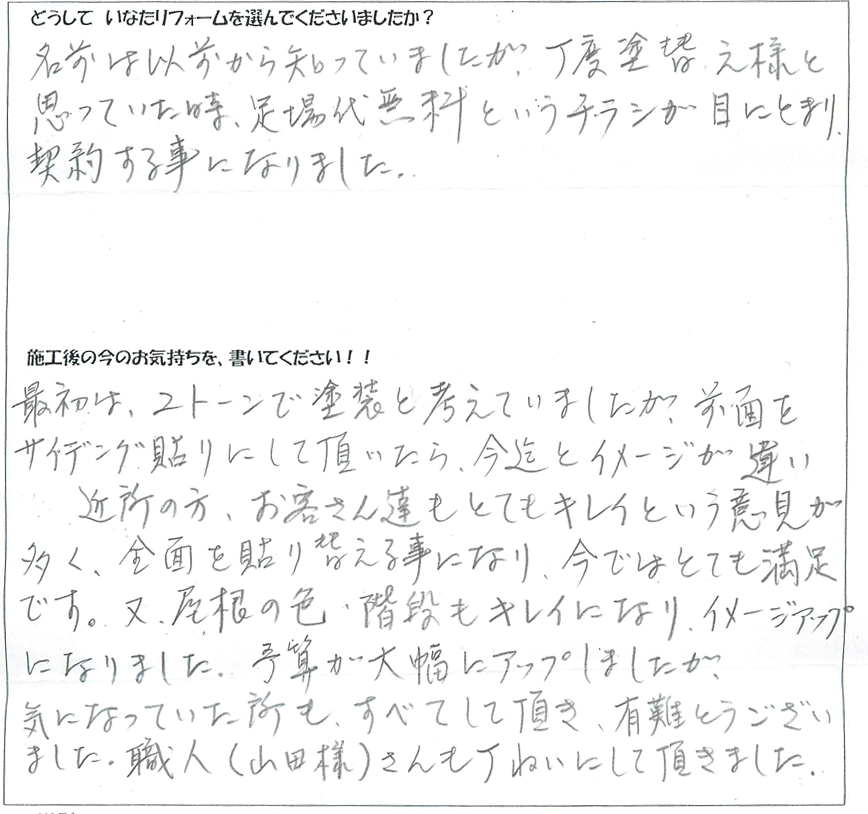 どうして いなたリフォームを選んでくださいましたか？
名前は以前から知っていましたが、丁度塗替え様と
思っていた時、足場代無料というチラシが目にとまり、
契約する事になりました。
施工後の今のお気持ちを、書いてください！！
最初は、2トーンで塗装と考えていましたが、前面を
サイディング貼りにして頂いたら、今迄とイメージが違い
近所の方、お客さん達もとてもキレイという意見が
多く、全面を貼り替える事になり、今ではとても満足
です。又、屋根の色・階段もキレイになり、イメージアップ
になりました。予算が大幅にアップしましたが、
気になっていた所も、すべてして頂き、有難とうござい
ました。職人（山田様）さんも丁ねいにして頂きました。